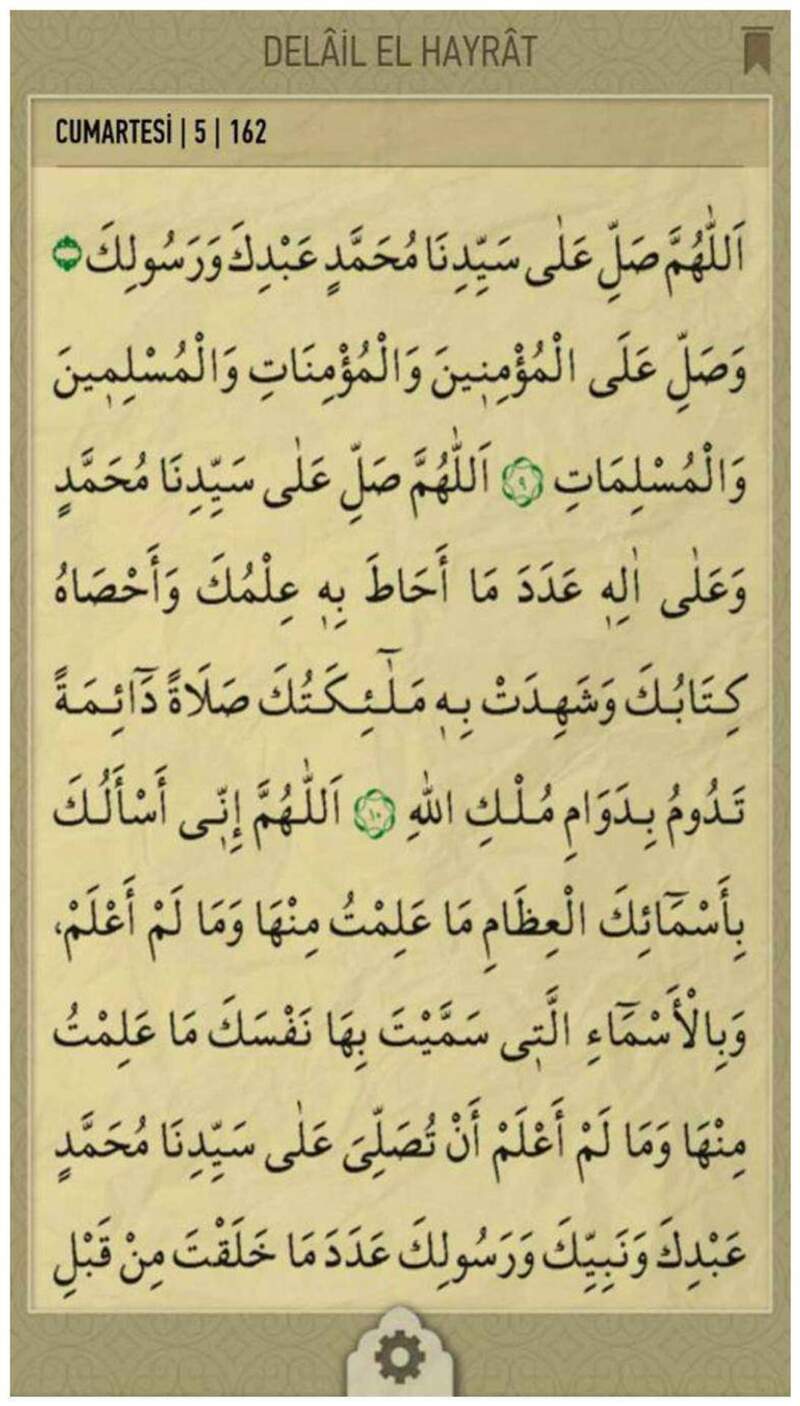 DELÂİL EL HAYRÂT
CUMARTESİ | 5 | 162
اَللّٰهُمَّ صَلِّ عَلٰى سَيِّدِنَا مُحَمَّدٍ عَبْدِكَ وَرَسُولِكَ
وَصَلِّ عَلَى الْمُؤْمِنٖينَ وَالْمُؤْمِنَاتِ وَالْمُسْلِمٖينَ
وَالْمُسْلِمَاتِ ٩ اَللّٰهُمَّ صَلِّ عَلٰى سَيِّدِنَا مُحَمَّدٍ
وَعَلٰى اٰلِهٖ عَدَدَ مَا أَحَاطَ بِهٖ عِلْمُكَ وَأَحْصَاهُ
كِتَابُكَ وَشَهِدَتْ بِهٖ مَلٰٓئِكَتُكَ صَلَاةً دَٓائِمَةً
تَدُومُ بِدَوَامِ مُلْكِ اللّٰهِ ١٠ اَللّٰهُمَّ إِنّٖى أَسْأَلُكَ
بِأَسْمَٓائِكَ الْعِظَامِ مَا عَلِمْتُ مِنْهَا وَمَا لَمْ أَعْلَمْ،
وَبِالْأَسْمَٓاءِ الَّتٖى سَمَّيْتَ بِهَا نَفْسَكَ مَا عَلِمْتُ
مِنْهَا وَمَا لَمْ أَعْلَمْ أَنْ تُصَلِّىَ عَلٰى سَيِّدِنَا مُحَمَّدٍ
عَبْدِكَ وَنَبِيِّكَ وَرَسُولِكَ عَدَدَ مَا خَلَقْتَ مِنْ قَبْلِ